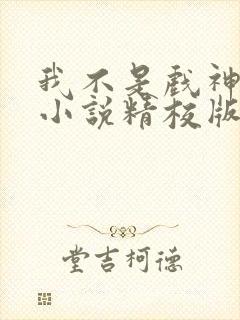 我不是戏神
小说精校版
堂吉柯德